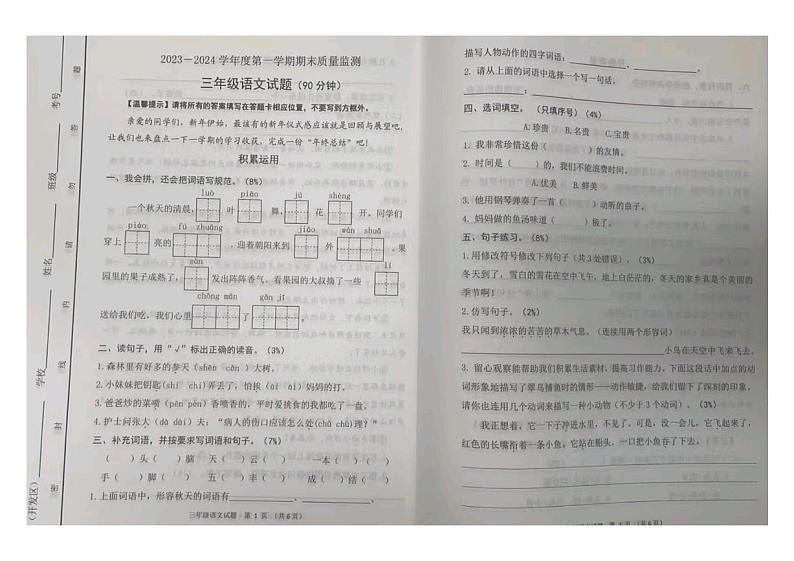 2023－2024学年度第一学期期末质量监测
三年级语文试题（90分钟）
【温馨提示】请将所有的答案填写在答题卡相应位置，不要写到方框外。
亲爱的同学们，新年伊始，最该有的新年仪式感应该就是回顾与展望吧，
让我们也来盘点一下一学期的学习收获，完成一份“年终总结”吧！
积累运用
一、我会拼，还会把词语写规范。（8%）
luò piāo jú shèng
一个秋天的清晨， 叶 舞， 花 开。同学们
piào fú zhuāng gǎn wǎn shuǎ
穿上 亮的 ，迎着朝阳来到 外 。果
园里的果子成熟了， 发出阵阵香气。看果园的大叔摘了一些
chōng mǎn gǎn jī
送给我们吃。我们心里 了 。
二、读句子，用“√”标出正确的读音。（3%）
1.森林里有好多的参天（shēn cān）大树。
2.小妹妹把钥匙(shi chí)弄丢了，怕挨（āi ái）妈妈的打。
3.爸爸炒的菜喷（pān pèn）香喷香的，平时爱挑食的我都吃了一盘。
4.护士问张大（dà dài）夫：“病人的伤口应该怎么处(chǔ chù)理？”
三、补充词语，并按要求写词语和句子。（7%）
（ ）头（ ）脑 天（ ）云（ ） 一本（ ）（ ）
手（ ）足（ ） 五（ ）丰（ ） （ ）（ ）成风
1.上面词语中，形容秋天的词语有
三年级语文试题·第 1 页 （共6页）
考号
班级
姓名
学校
（开发区）
题
答
勿
请
内
线
封
密
描写人物动作的四字词语：
2. 请从上面的词语中选择一个写一句话。
四、选词填空。（只填序号）（4%）
A.珍贵 B.名贵 C.宝贵
1.我非常珍惜这份（ ）的友情。
2.时间是（ ）的，我们不能浪费时间。
A.优美 B.鲜美
3.他用钢琴弹奏了一首（ ）动听的曲子。
4.妈妈做的鱼汤味道（ ）极了。
五、句子练习。（8%）
1.用修改符号修改下列句子（共3处错误）。（3%）
冬天到了，雪白的雪花在空中飞午，地上白茫茫的，冬天的家乡真是个美丽的
季节啊！
2.仿写句子。（2%）
我只闻到浓浓的苦苦的草木气息。（连续用两个形容词）
小鸟在天空中飞来飞去。
3.留心观察能帮助我们积累生活素材，提高习作能力，下面这段话中加点的动
词形象地描写了翠鸟捕鱼时的情形——动作敏捷，给我们留下了深刻的印象，
请你也连用几个动词来描写一种小动物（不少于3个动词）。（3%）
我正想着，它一下子冲进水里，不见了。可是，没一会儿，它飞起来了，
红色的长嘴衔着一条小鱼。它站在船头，一口把小鱼吞了下去。